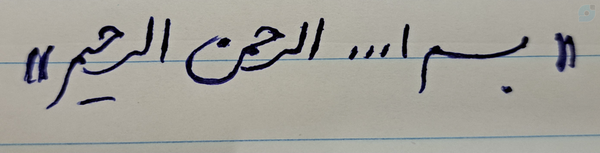 «بسم ا... الرحمن الرحیم»